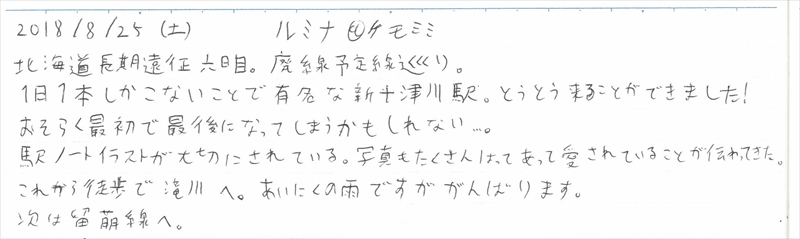 2018/8/25 (土) ルミナ@ケモミミ
北海道長期遠征六日目。廃線予定線巡り。
1日1本しかこないことで有名な新十津川駅。とうとう来ることができました!
おそらく最初で最後になってしまうかもしれない…。
駅ノートイラストが大切にされている。写真もたくさんはってあって愛されていることが伝わってきた。
これから徒歩で滝川へ。あいにくの雨ですががんばります。
次は留萌線へ。